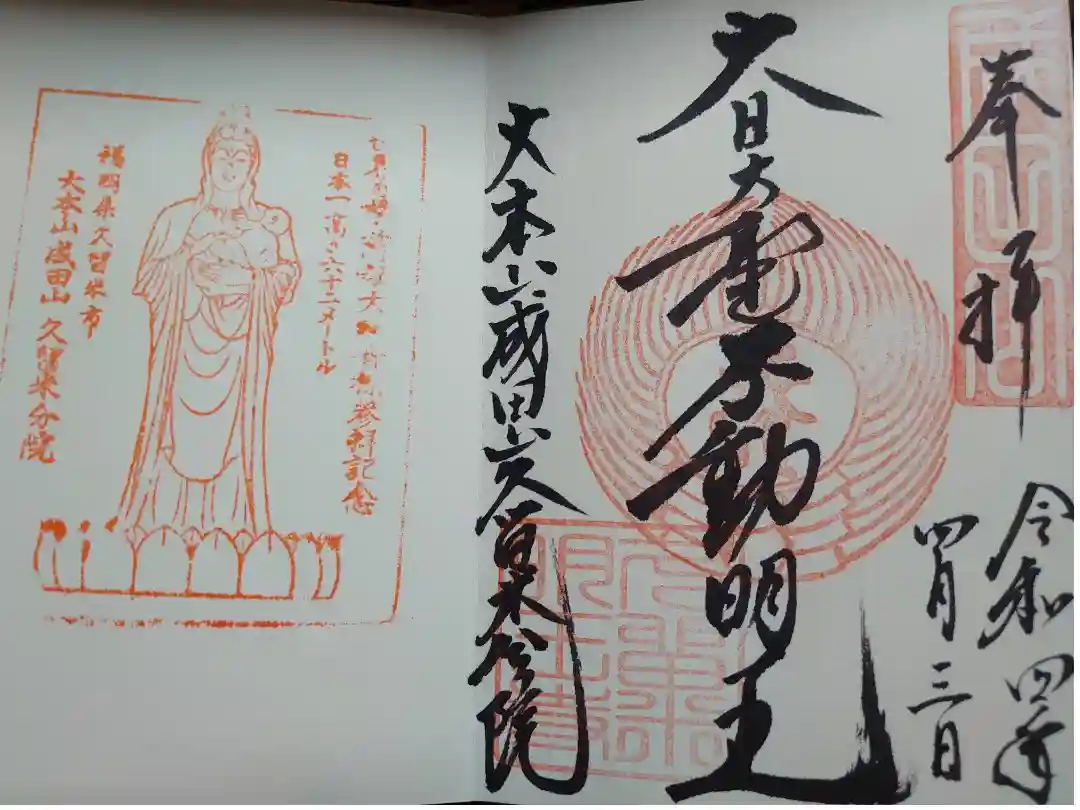 奉拝
令和四年
四月三日
大日大聖不動明王
大本山成田山久留米分院
日本一高さ六十二メートル
福岡県久留米市
大本山成田山 久留米分院